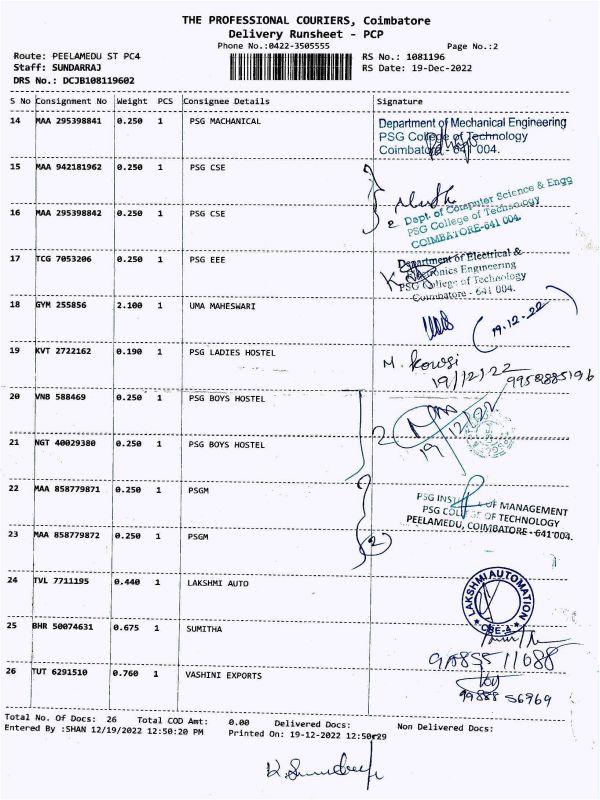 THE PROFESSIONAL COURIERS, Coimbatore
Delivery Runsheet - PCP
Phone No.:0422-3505555 Page No.:2
Route: PEELAMEDU ST PC4 RS No.: 1081196
Staff: SUNDARRAJ RS Date: 19-Dec-2022
DRS No.: DCJB108119602
S No Consignment No Weight PCS Consignee Details Signature
14 MAA 295398841 0.250 1 PSG MACHANICAL
Department of Mechanical Engineering
PSG College of Technology
Coimbatore - 641 004.
15 MAA 942181962 0.250 1 PSG CSE
16 MAA 295398842 0.250 1 PSG CSE
2 Dept. of Computer Science & Engg
PSG College of Technology
COIMBATORE-641 004.
17 TCG 7053206 0.250 1 PSG EEE
Department of Electrical &
Electronics Engineering
PSG College of Technology
Coimbatore - 641 004.
18 GYM 255856 2.100 1 UMA MAHESWARI
19.12.22
19 KVT 2722162 0.190 1 PSG LADIES HOSTEL
M. Kowsi
19/12/22
20 VNB 588469 0.250 1 PSG BOYS HOSTEL
2 19/12/22
21 NGT 40029380 0.250 1 PSG BOYS HOSTEL
22 MAA 858779871 0.250 1 PSGM
PSG INSTITUTE OF MANAGEMENT
PSG COLLEGE OF TECHNOLOGY
PEELAMEDU, COIMBATORE - 641 004.
23 MAA 858779872 0.250 1 PSGM
2
24 TVL 7711195 0.440 1 LAKSHMI AUTO
LAKSHMI AUTOMATION
CBE-4
25 BHR 50074631 0.675 1 SUMITHA
26 TUT 6291510 0.760 1 VASHINI EXPORTS
99888 56969
Total No. Of Docs: 26 Total COD Amt: 0.00 Delivered Docs: Non Delivered Docs:
Entered By :SHAN 12/19/2022 12:50:20 PM Printed On: 19-12-2022 12:50:29